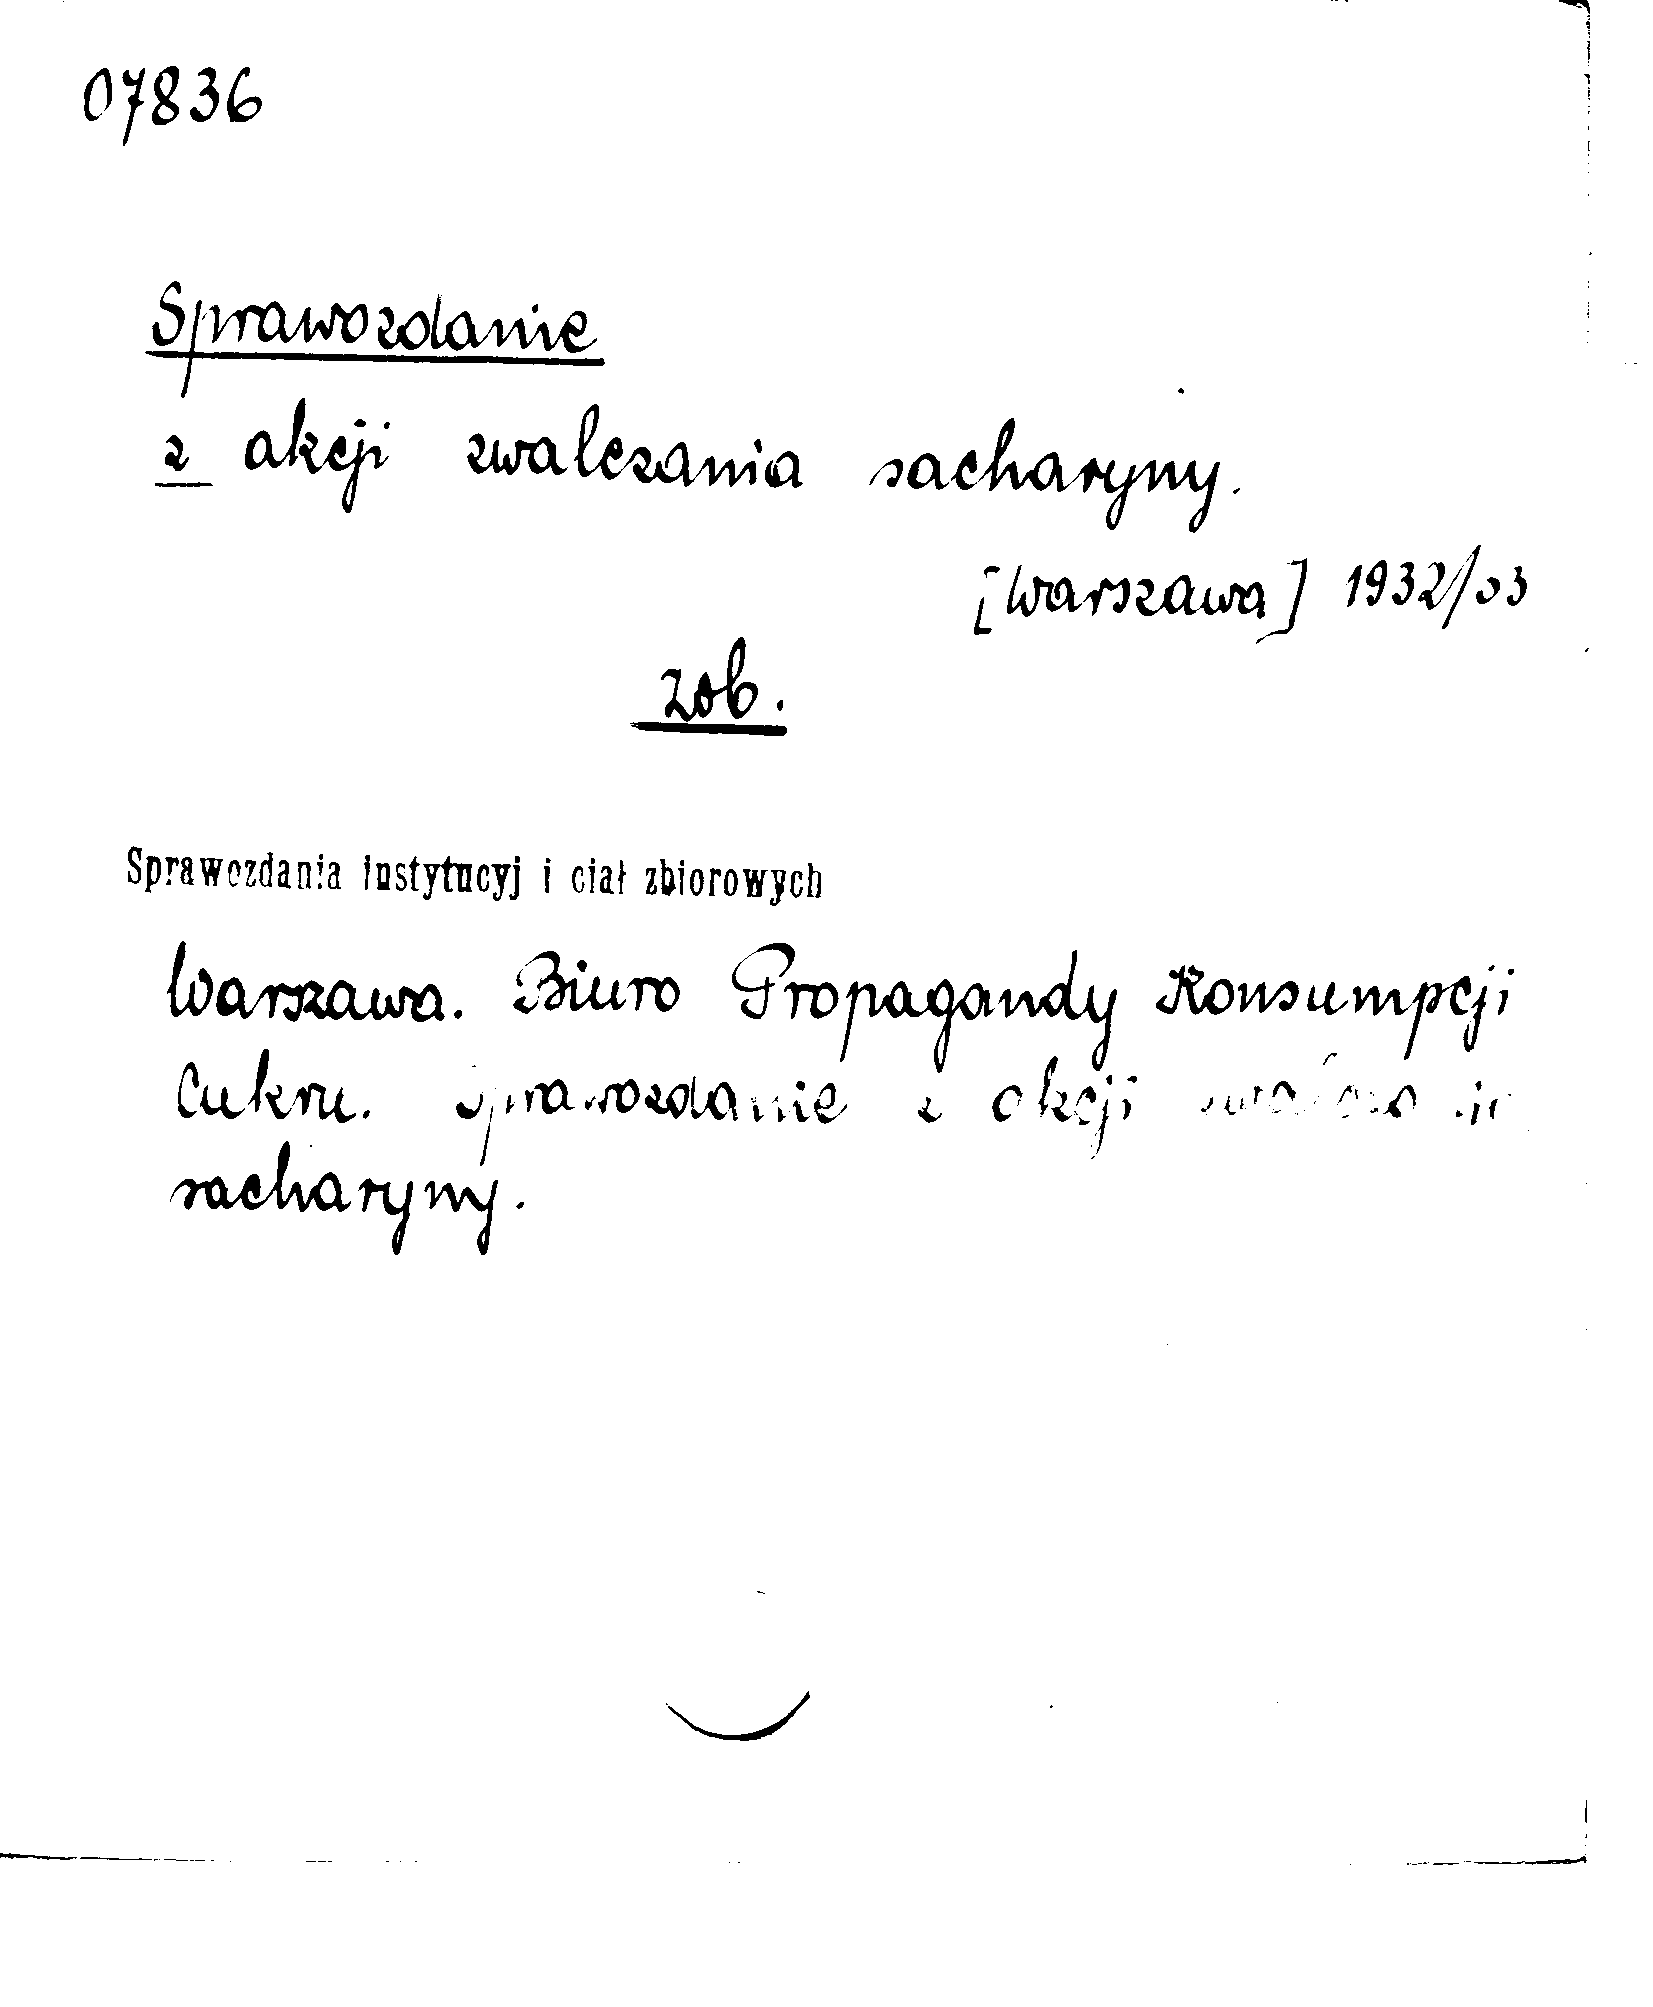 07836
Sprawozdanie
z akcji zwalczania sacharyny.
[Warszawa] 1932/33
zob.
Sprawozdania instytucyj i ciał zbiorowych
Warszawa. Biuro Propagandy Konsumpcji
Cukru. Sprawozdanie z akcji
sacharyny.